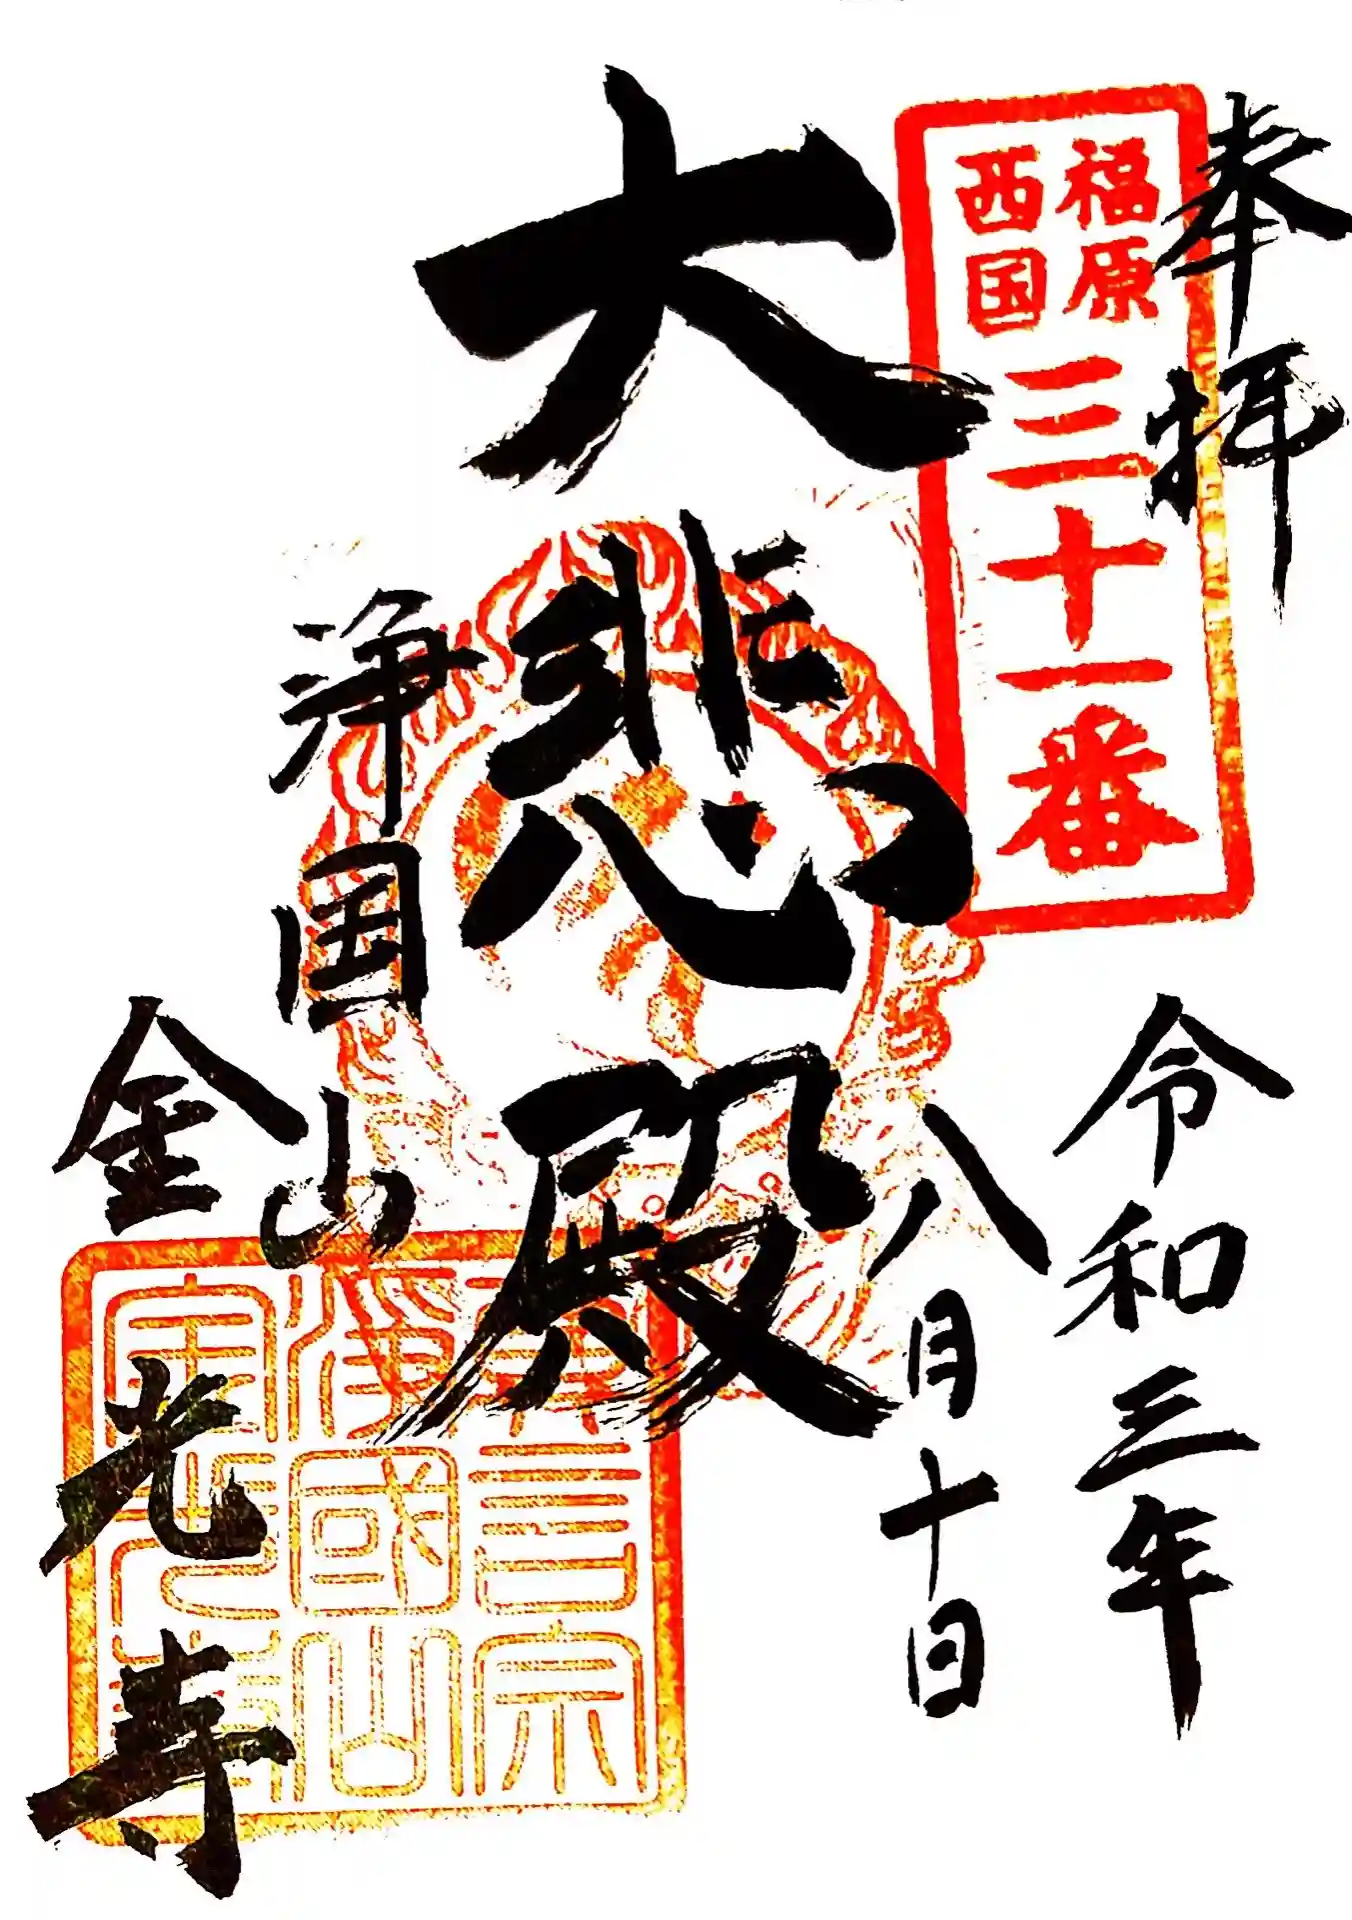 奉拝
福原
西国
三十一番
令和三年
八月十日
大悲殿
浄国山
金光寺
真言宗
浄國山
金光寺